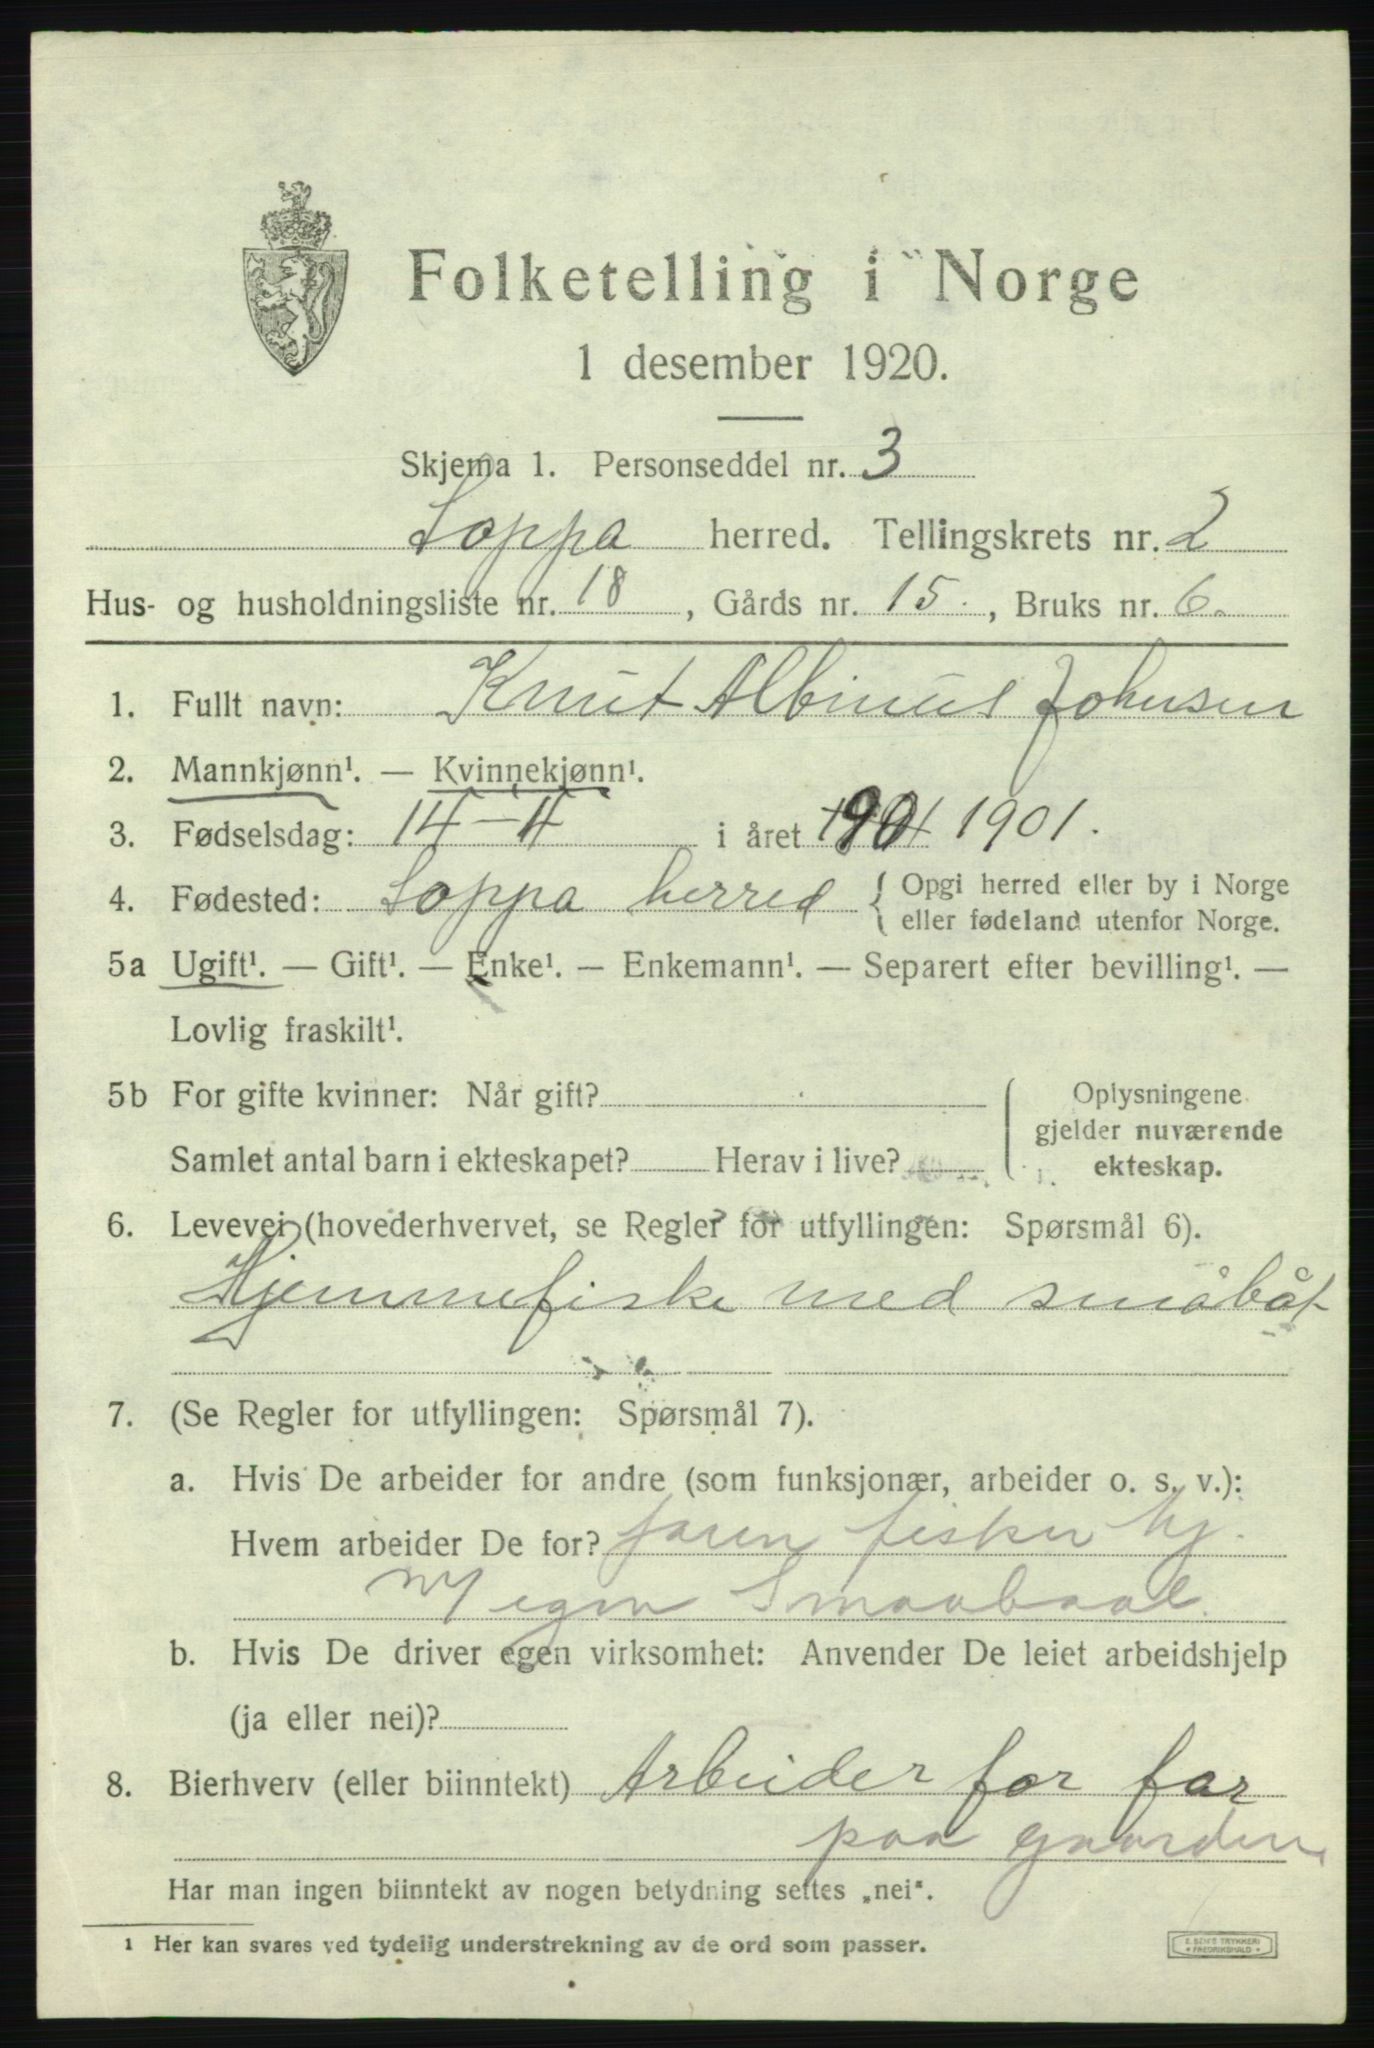 Folketelling i Norge
1 desember 1920.
Skjema 1. Personseddel nr. 3
Loppa herred. Tellingskrets nr. 2
Hus- og husholdningsliste nr. 18, Gårds nr. 15., Bruks nr. 6.
1. Fullt navn: Knut Albinus Johnsen
2. Mannkjønn¹. — Kvinnekjønn¹.
3. Fødselsdag: 14 - 4 i året 1901.
4. Fødested: Loppa herred { Opgi herred eller by i Norge
eller fødeland utenfor Norge.
5a Ugift¹. — Gift¹. — Enke¹. — Enkemann¹. — Separert efter bevilling¹. —
Lovlig fraskilt¹.
5b For gifte kvinner: Når gift? Oplysningene
gjelder nuværende
Samlet antal barn i ekteskapet? Herav i live? ekteskap.
6. Levevei (hovederhvervet, se Regler for utfyllingen: Spørsmål 6).
Hjemmefiske med småbåt
7. (Se Regler for utfyllingen: Spørsmål 7).
a. Hvis De arbeider for andre (som funksjonær, arbeider o. s. v.):
Hvem arbeider De for? faren fisker hj.
M egen Smaabaat.
b. Hvis De driver egen virksomhet: Anvender De leiet arbeidshjelp
(ja eller nei)?
8. Bierhverv (eller biinntekt) Arbeider for far
paa gaarden.
Har man ingen biinntekt av nogen betydning settes „nei“.
¹ Her kan svares ved tydelig understrekning av de ord som passer.
E. SEM'S TRYKKERI
FREDRIKSHALD